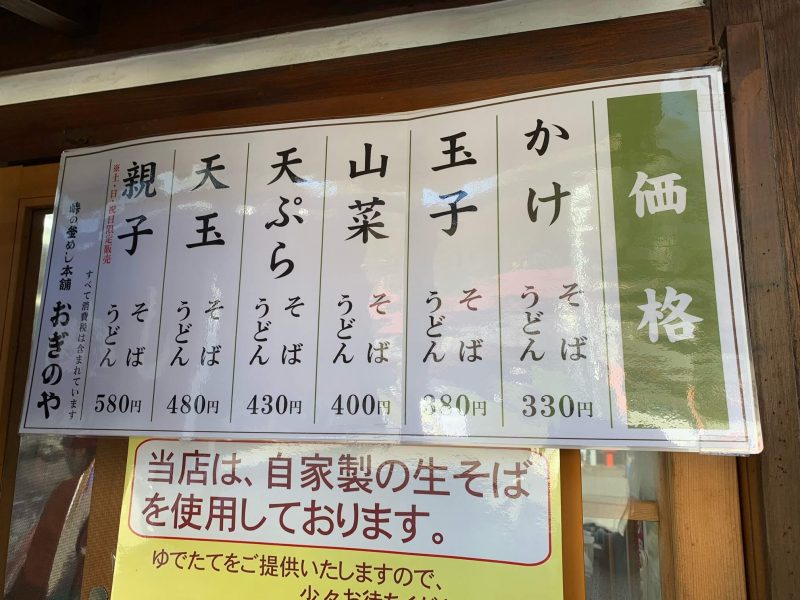 価格
かけ
そば
うどん
330円
玉子
そば
うどん
380円
山菜
そば
うどん
400円
天ぷら
そば
うどん
430円
天玉
そば
うどん
480円
※土・日・祝日限定販売
親子
そば
うどん
580円
すべて消費税は含まれています
峠の釜めし本舗 おぎのや
当店は、自家製の生そば
を使用しております。
ゆでたてをご提供いたしますので、
少々お待ちくだ